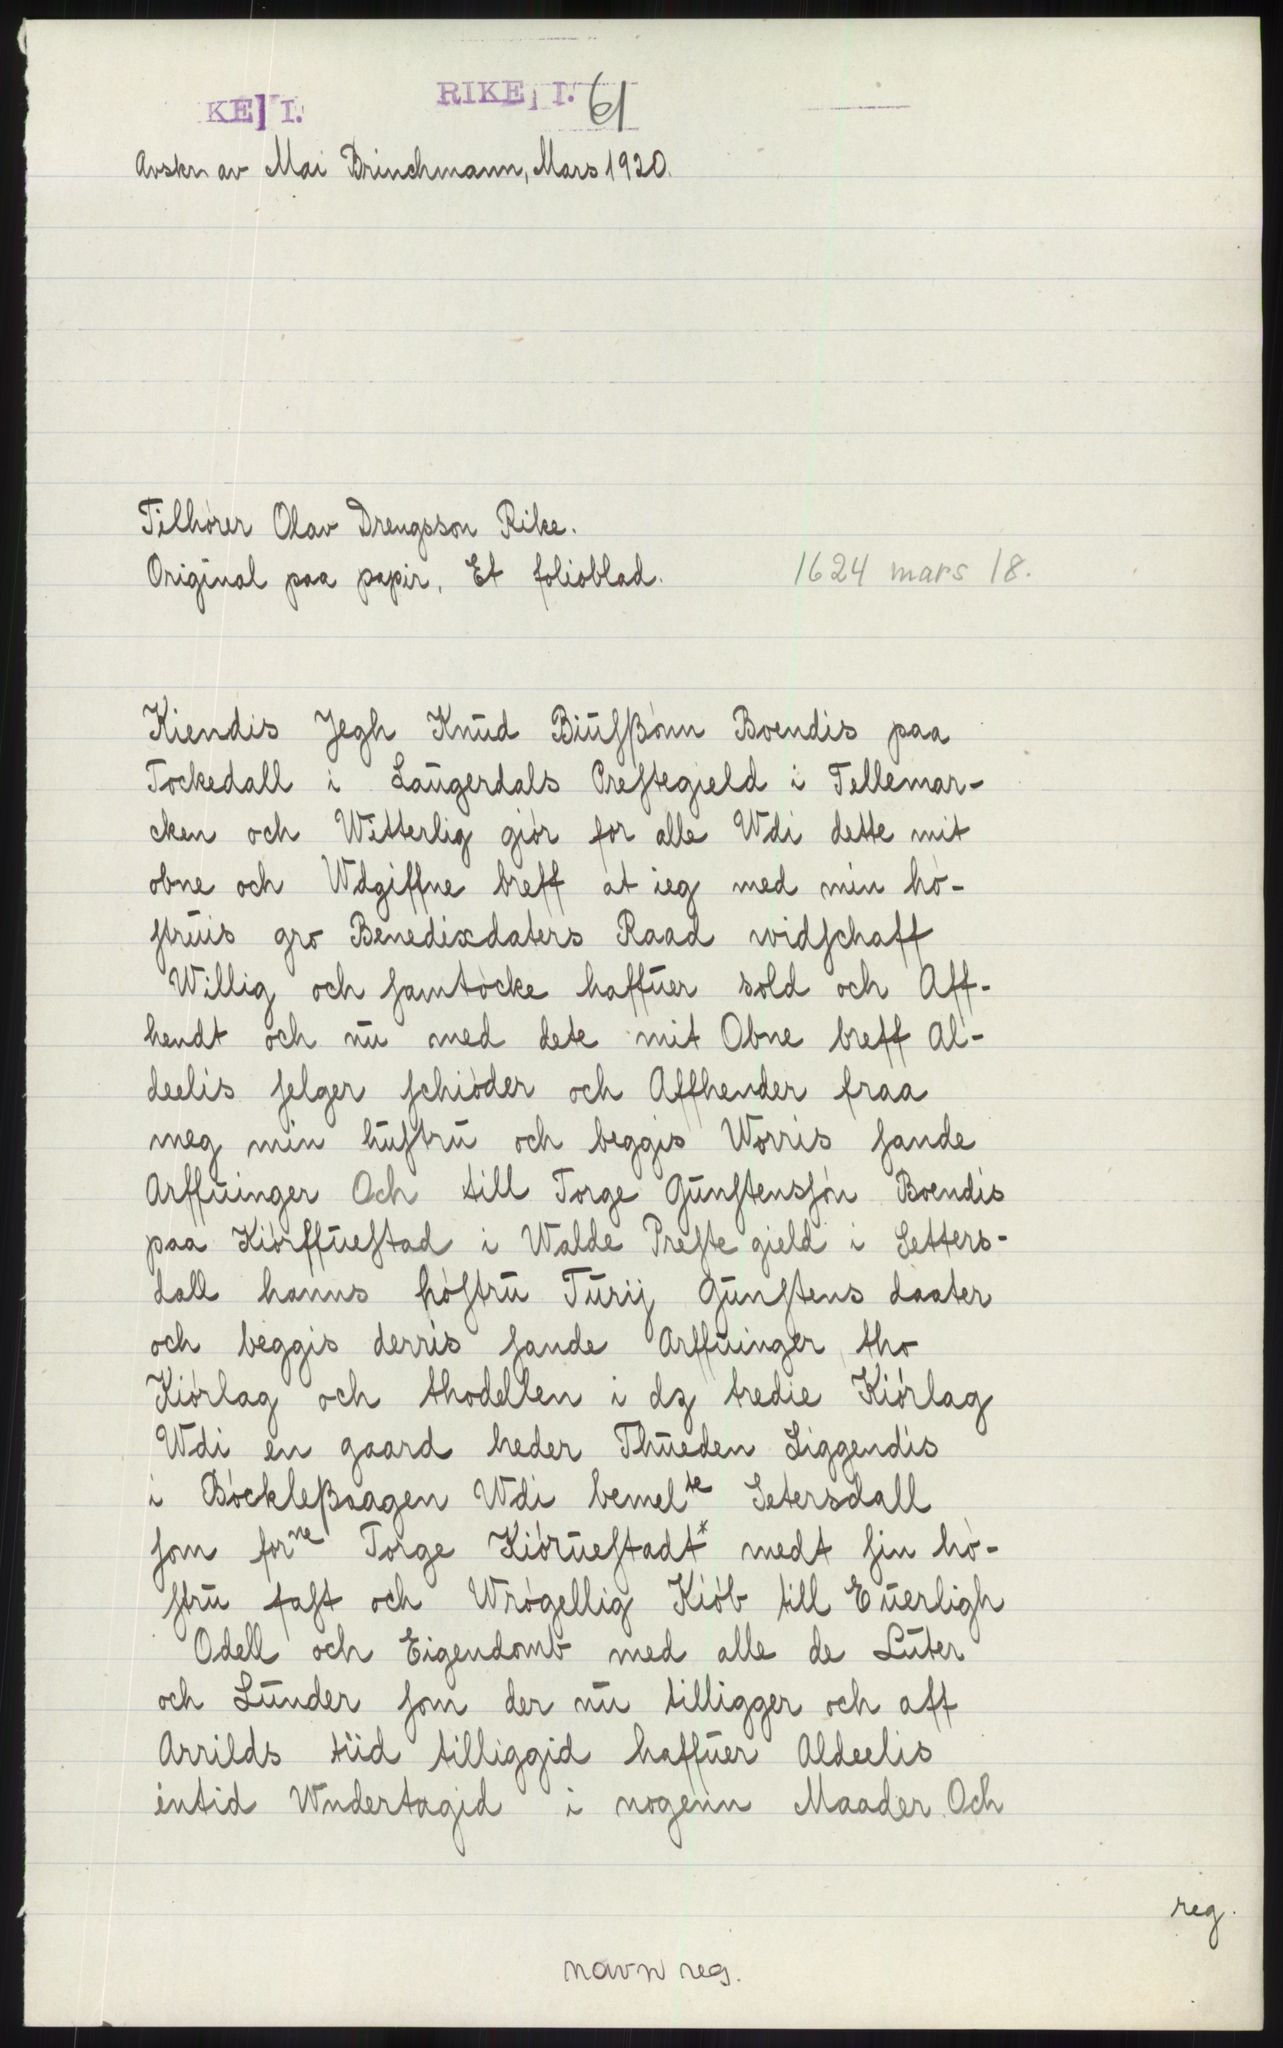 KE] I.
RIKE] I. 61
Avskr. av Mai Brinchmann, Mars 1920.
Tilhører Olav Drengsson Rike.
Original paa papir. Et folioblad.
1624 mars 18.
Kiendis Jegh Knud Biufßønn Boendis paa
Tockedall i Laugerdals Prestegield i Tellemar-
cken och Witterlig giør for alle Wdi dette mit
obne och Wdgiffne breff at ieg med min hø-
struis gro Benedixdaters Raad widschaff
Willig och samtøcke haffuer sold och Aff-
hendt och nu med dete mit Obne breff Al-
deelis selger schiøder och Affhender fraa
meg min hustru och beggis Worris sande
Arffuinger Och till Torge Gunstensøn Boendis
paa Kiørffuestad i Walde Preste gield i Setters-
dall hanns høstru Turij Gunstens daater
och beggis derris sande Arffuinger tho
Kiørlag och thodellen i dz tredie Kiørlag
Wdi en gaard heder Thueden Liggendis
i Bøckleßaagen Wdi bemelte Setersdall
som forne Torge Kiøruestadt* medt sin hø-
stru fast och Wrøgellig Kiøb till Euerligh
Odell och Eigendomb med alle de Luter
och Lunder som der nu tilligger och aff
Arrilds tiid tilliggid haffuer Aldeelis
intid Wndertagid i nogenn Maader Och
reg.
navn reg.